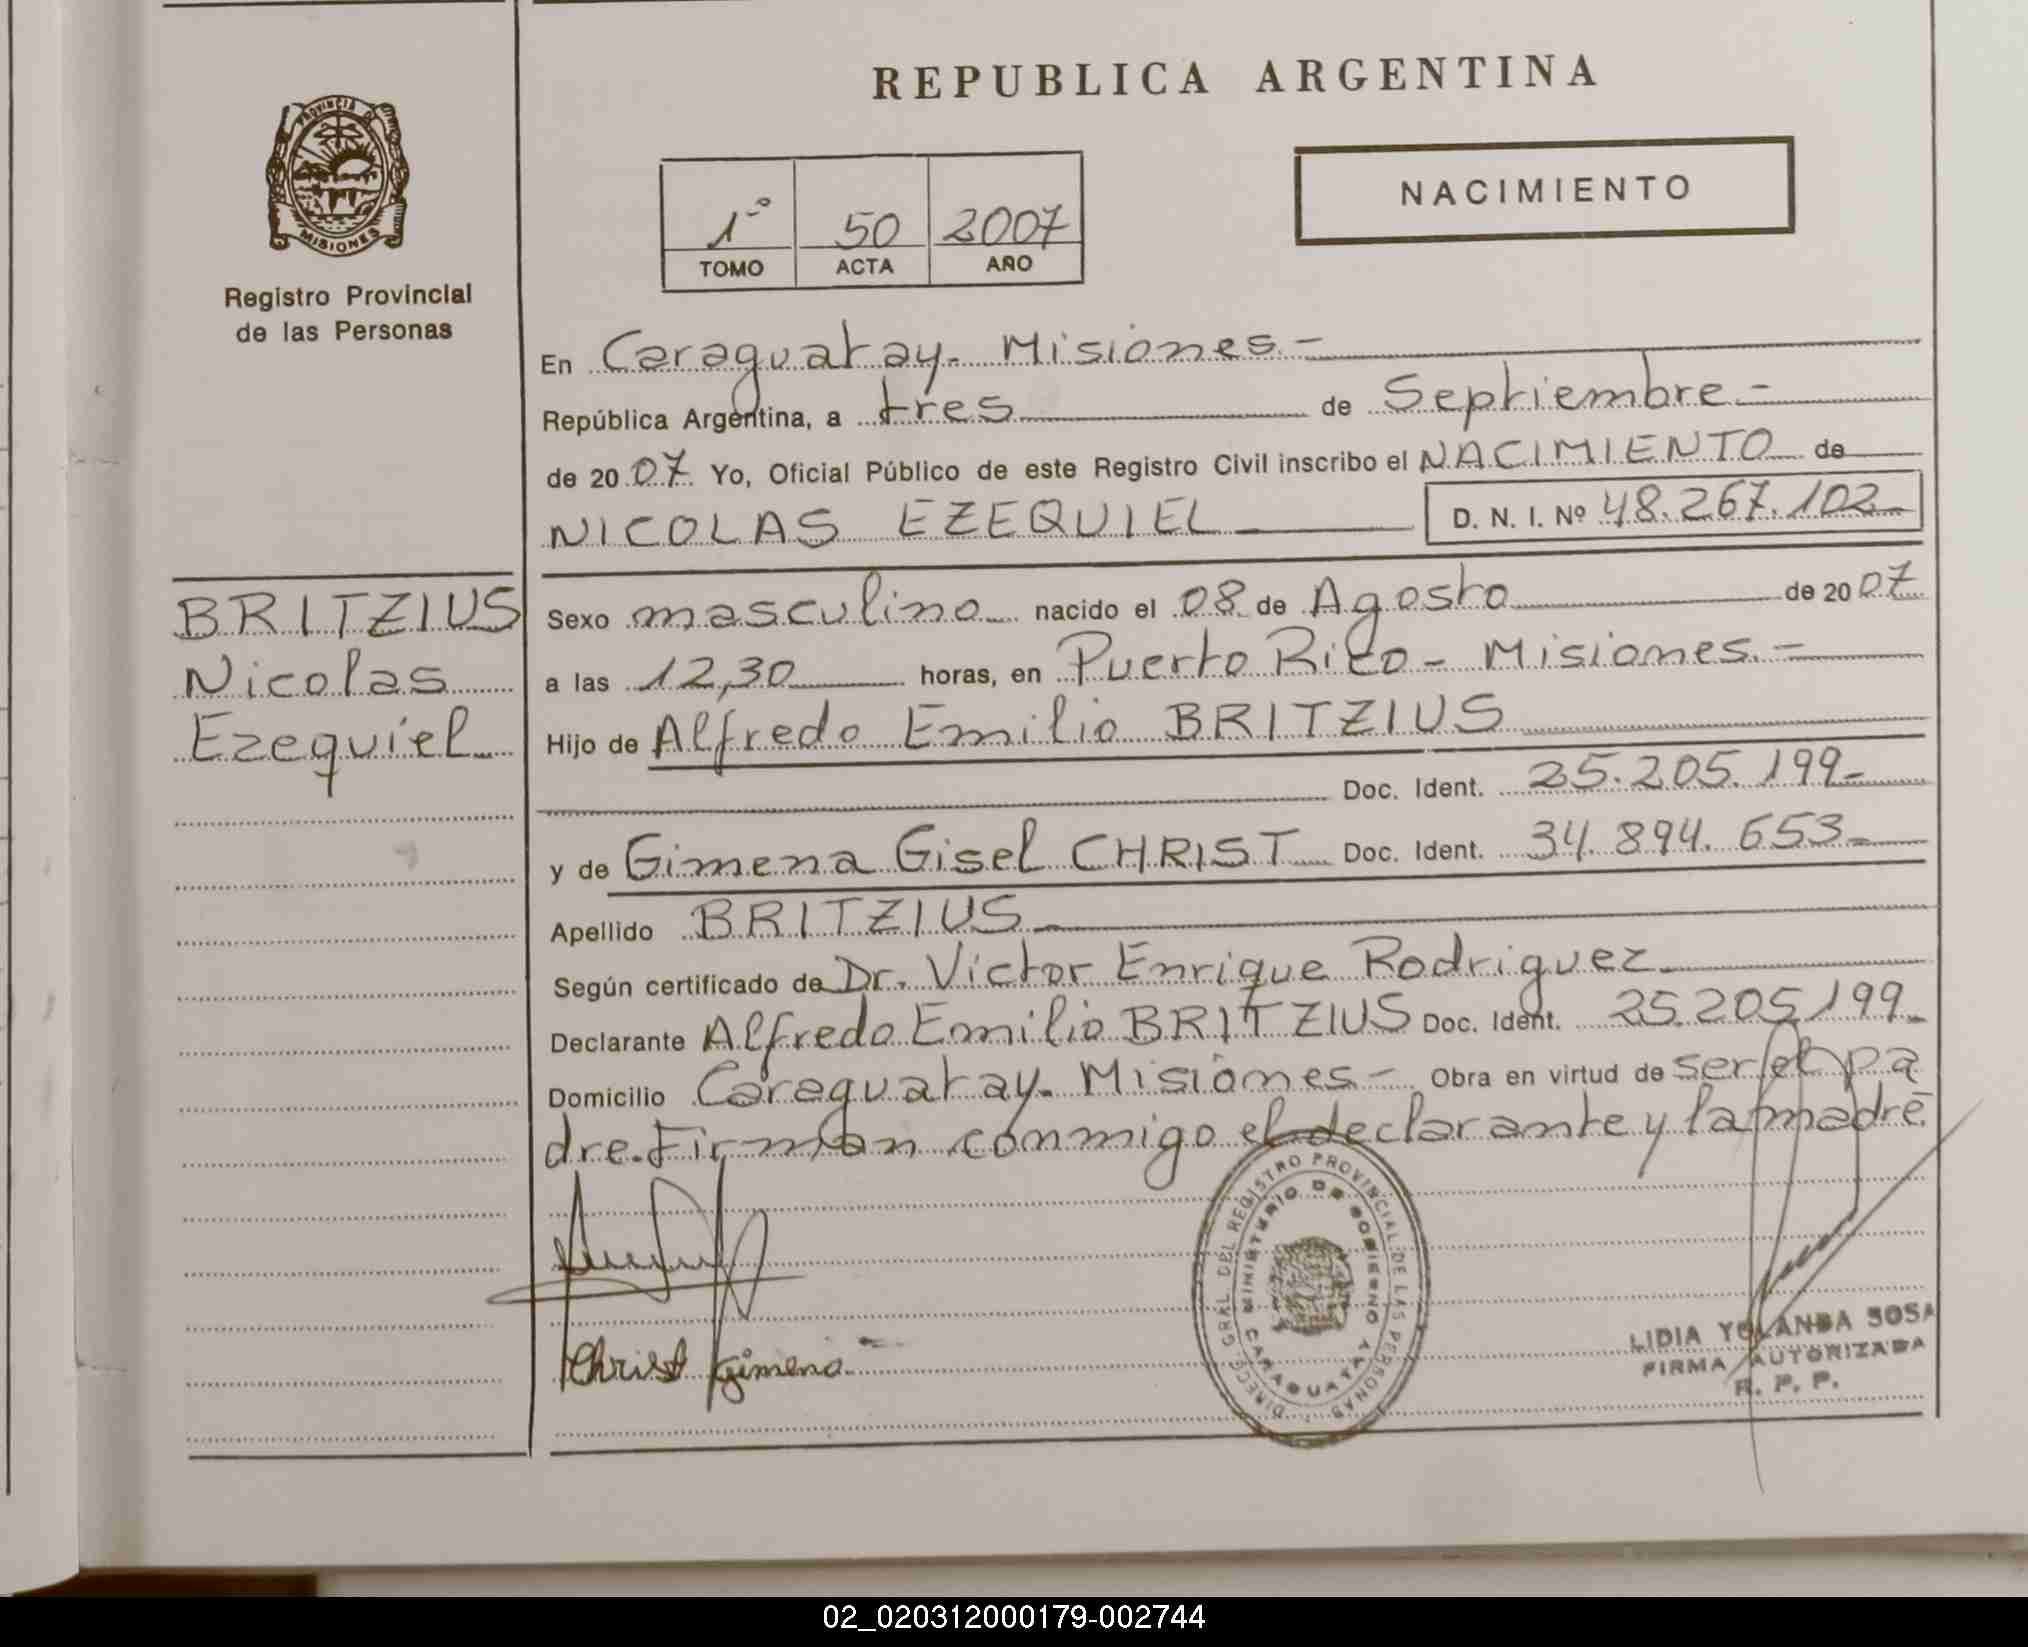 REPUBLICA ARGENTINA
PROVINCIA DE
MISIONES
Registro Provincial
de las Personas
NACIMIENTO
1º 50 2007
TOMO ACTA AÑO
En Caraguatay. Misiones.-
República Argentina, a tres de Septiembre.-
de 2007 Yo, Oficial Público de este Registro Civil inscribo el NACIMIENTO de
NICOLAS EZEQUIEL D. N. I. Nº 48.267.102-
BRITZIUS
Nicolas
Ezequiel
Sexo masculino nacido el 08 de Agosto de 2007
a las 12,30 horas, en Puerto Rico - Misiones.-
Hijo de Alfredo Emilio BRITZIUS
Doc. Ident. 25.205.199-
y de Gimena Gisel CHRIST Doc. Ident. 34.894.653-
Apellido BRITZIUS
Según certificado de Dr. Victor Enrique Rodriguez
Declarante Alfredo Emilio BRITZIUS Doc. Ident. 25.205.199-
Domicilio Caraguatay. Misiones.- Obra en virtud de ser el pa
dre. Firman conmigo el declarante y la madre
DIRECC. GRAL. DEL REGISTRO PROVINCIAL DE LAS PERSONAS
MINISTERIO DE GOBIERNO
CARAGUATAY
Christ Gimena
LIDIA YOLANDA SOSA
FIRMA AUTORIZADA
R. P. P.
02_020312000179-002744